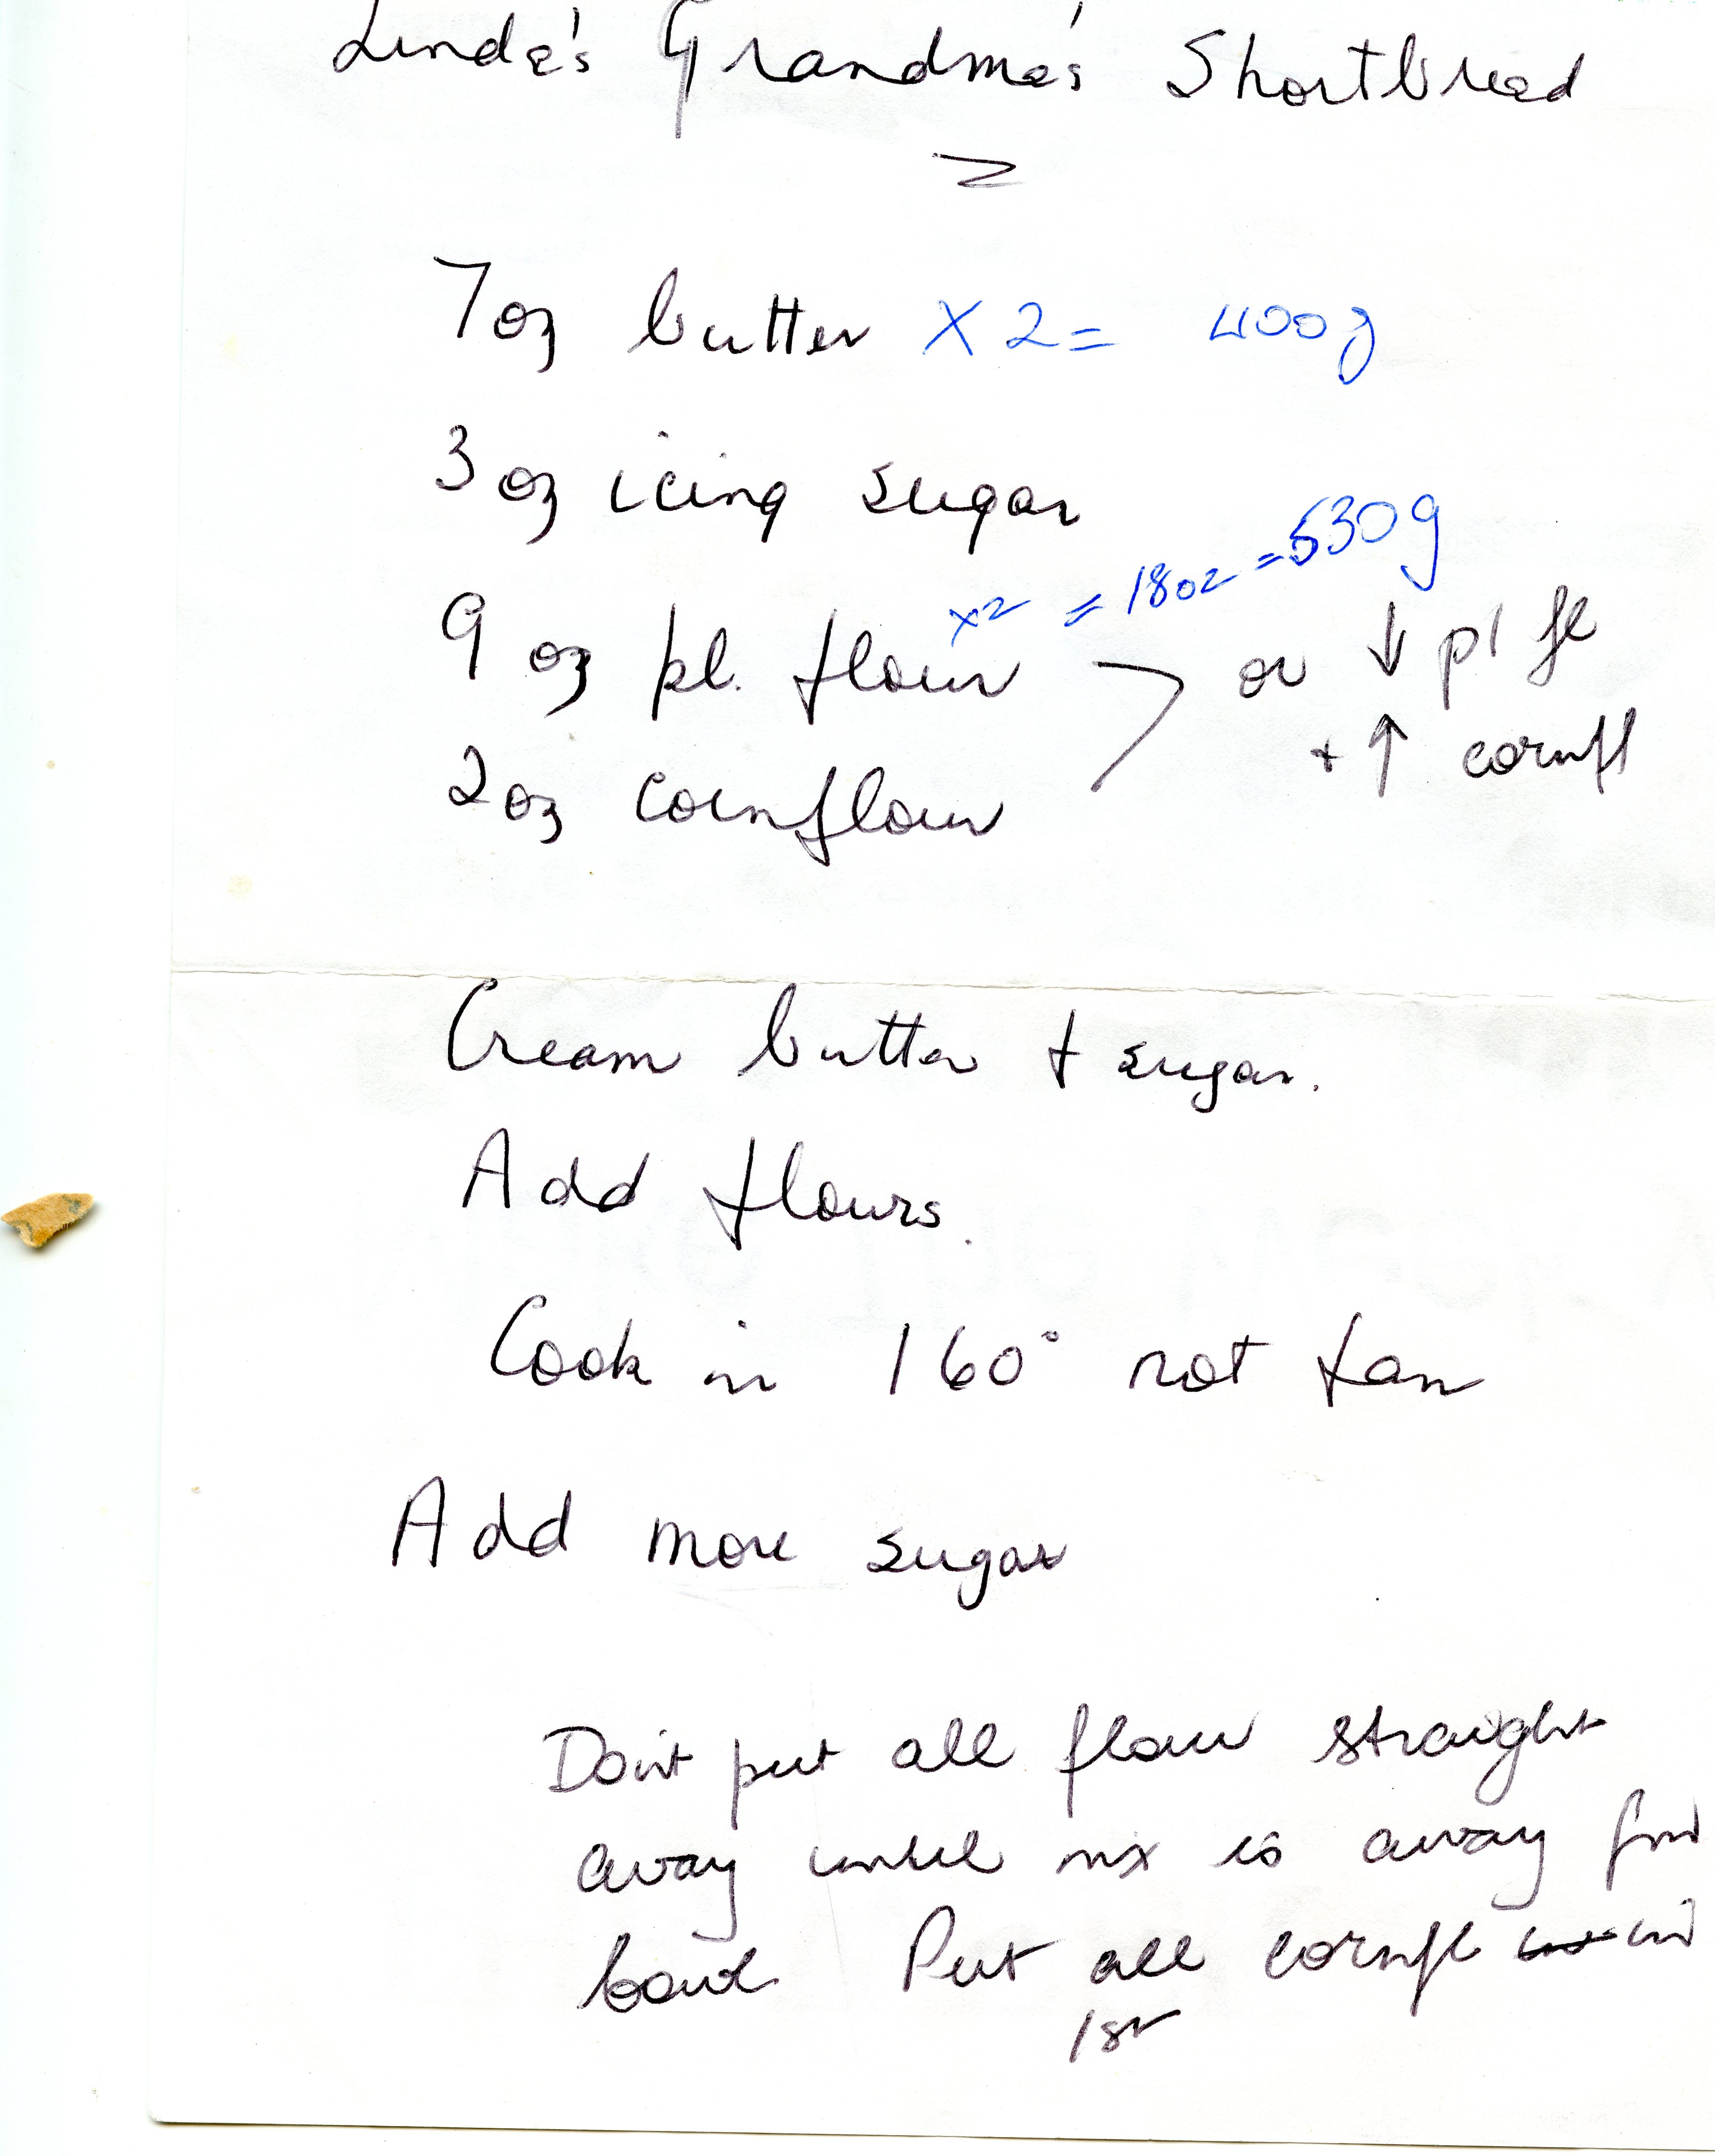 Linda's Grandma's Shortbread
7oz butter x2= 400g
3 oz icing sugar
x2 = 18oz = 530g
9 oz pl. flour or ↓ pl fl
2oz cornflour + ↑ cornfl
Cream butter + sugar.
Add flours.
Cook in 160° not fan
Add more sugar
Don't put all flour straight
away until mix is away from
bowl Put all cornfl in
1st